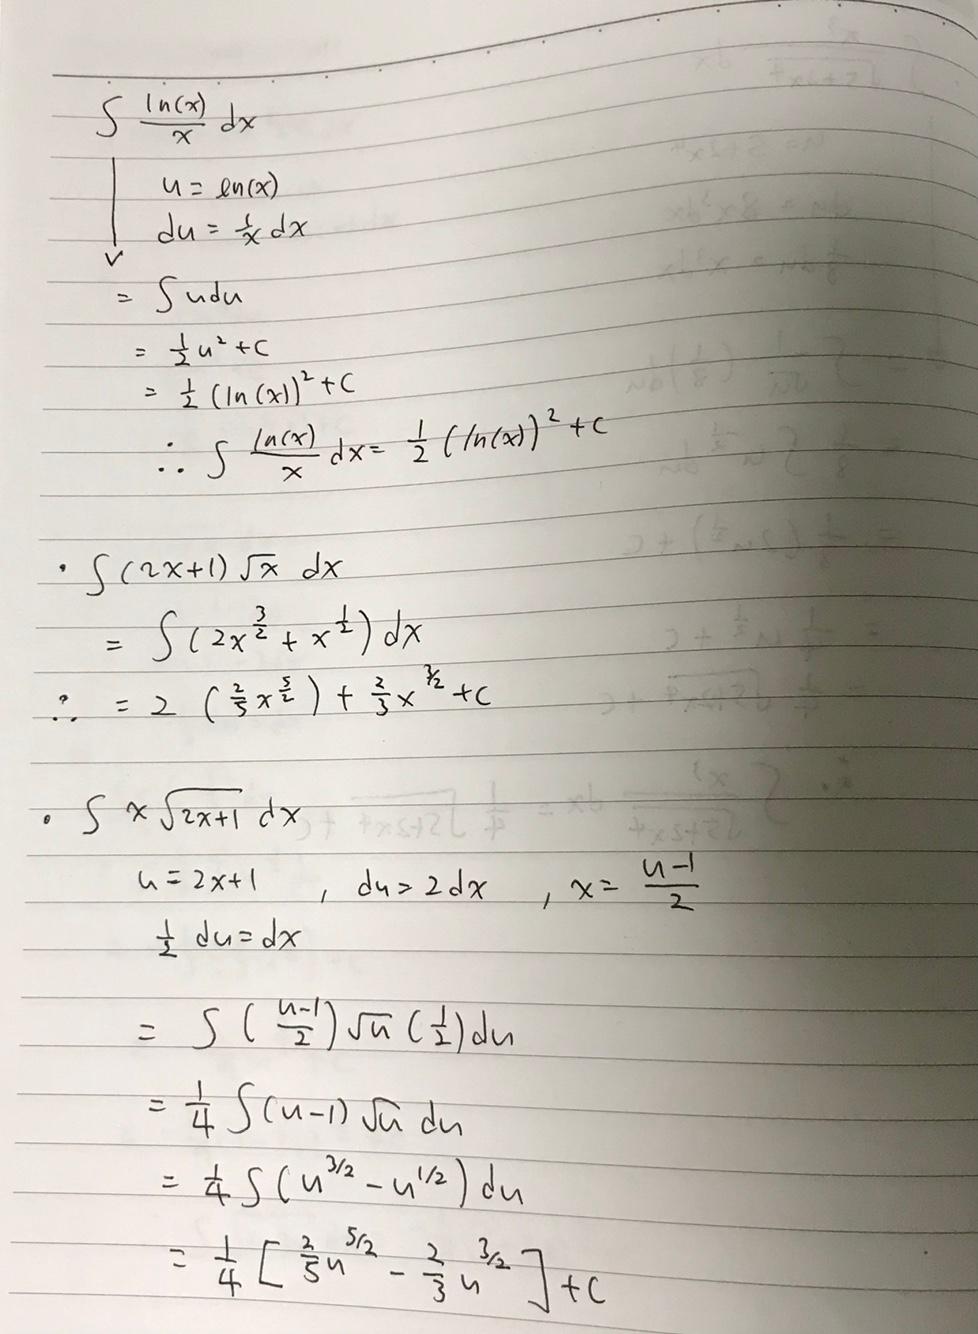 ∫ ln(x)/x dx
u = ln(x)
du = 1/x dx
= ∫ u du
= 1/2 u² + C
= 1/2 (ln(x))² + C
∴ ∫ ln(x)/x dx = 1/2 (ln(x))² + C
· ∫ (2x+1) √x dx
= ∫ (2x^(3/2) + x^(1/2)) dx
∴ = 2 (2/5 x^(5/2)) + 2/3 x^(3/2) + C
· ∫ x √(2x+1) dx
u = 2x+1 , du = 2dx , x = (u-1)/2
1/2 du = dx
= ∫ ((u-1)/2) √u (1/2) du
= 1/4 ∫ (u-1) √u du
= 1/4 ∫ (u^(3/2) - u^(1/2)) du
= 1/4 [ 2/5 u^(5/2) - 2/3 u^(3/2) ] + C